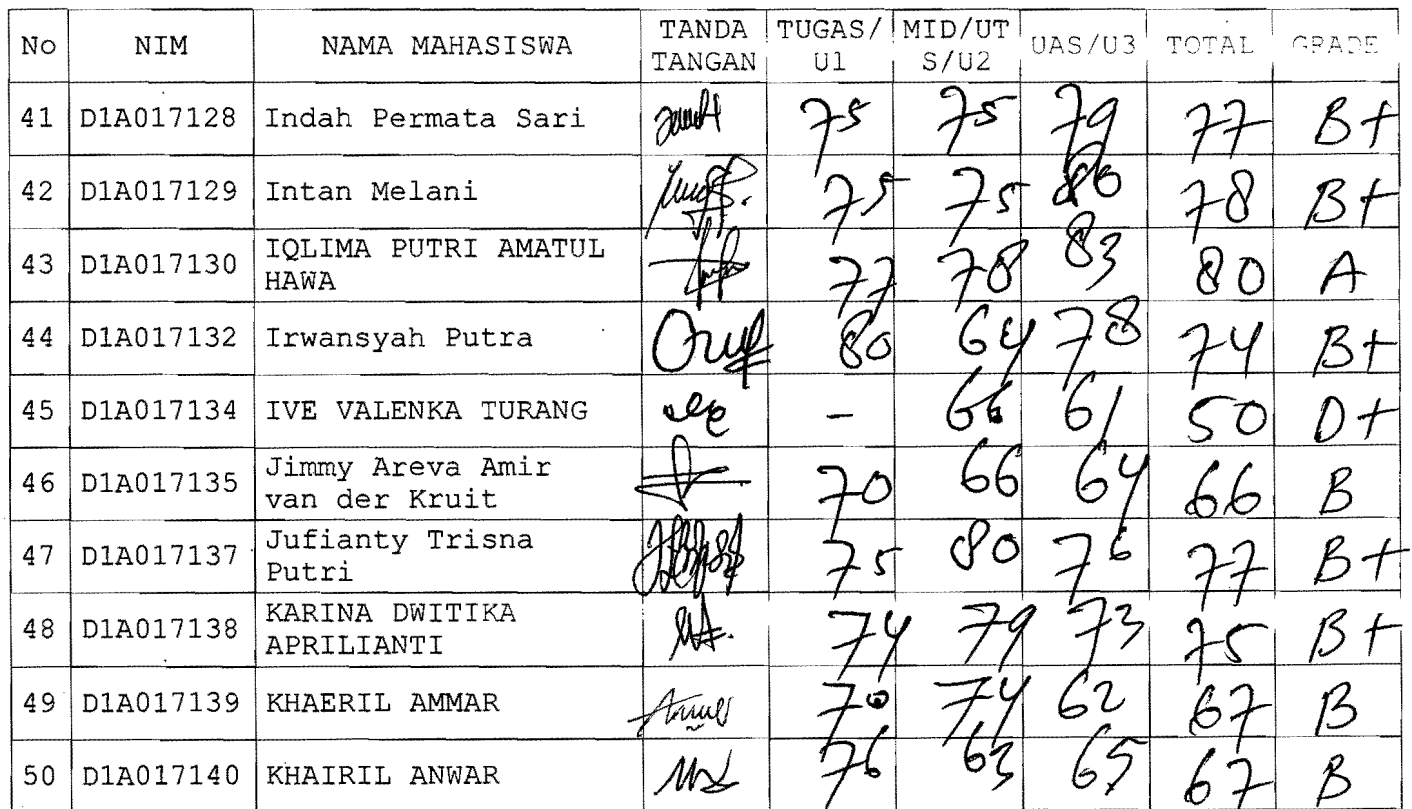 No NIM NAMA MAHASISWA TANDA TANGAN TUGAS/U1 MID/UTS/U2 UAS/U3 TOTAL GRADE
41 D1A017128 Indah Permata Sari 75 75 79 77 B+
42 D1A017129 Intan Melani 75 75 80 78 B+
43 D1A017130 IQLIMA PUTRI AMATUL 77 78 83 80 A
HAWA
44 D1A017132 Irwansyah Putra 80 64 78 74 B+
45 D1A017134 IVE VALENKA TURANG - 66 61 50 D+
46 D1A017135 Jimmy Areva Amir 70 66 64 66 B
van der Kruit
47 D1A017137 Jufianty Trisna 75 80 76 77 B+
Putri
48 D1A017138 KARINA DWITIKA 74 79 73 75 B+
APRILIANTI
49 D1A017139 KHAERIL AMMAR 70 74 62 67 B
50 D1A017140 KHAIRIL ANWAR 76 63 65 67 B